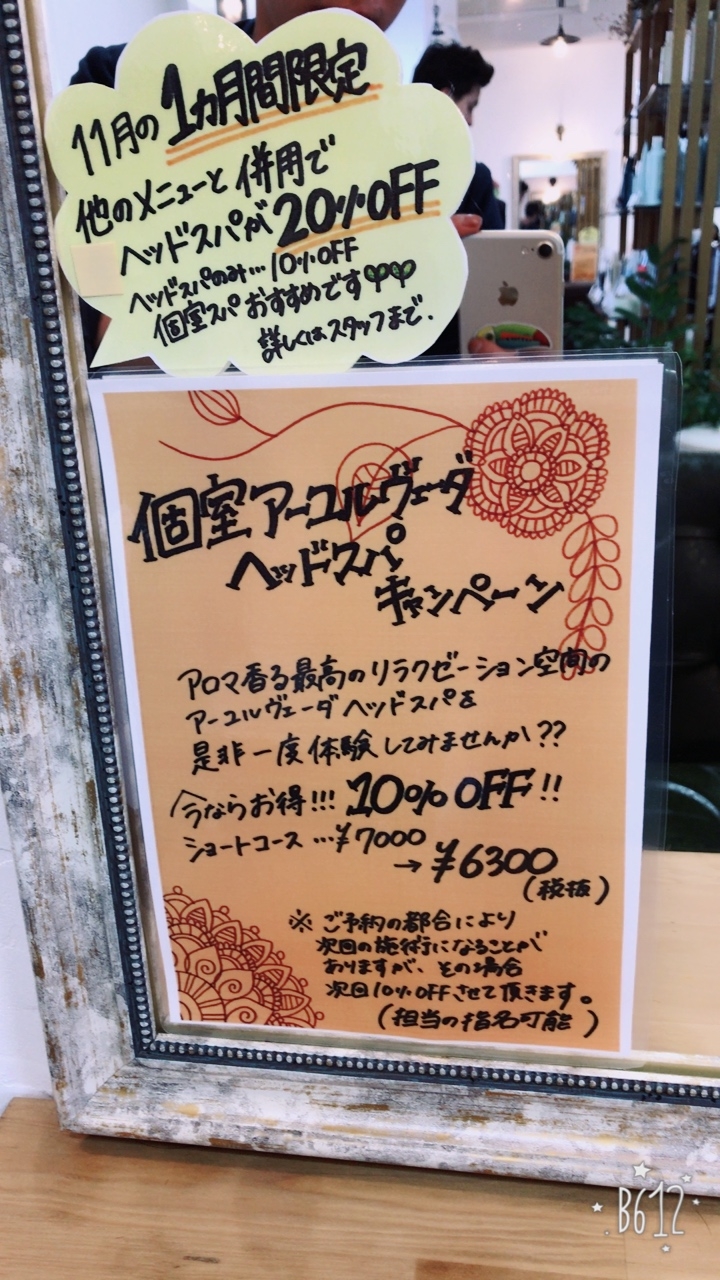 11月の1カ月間限定
他のメニューと併用で
ヘッドスパが20%OFF
ヘッドスパのみ…10%OFF
個室スパおすすめです
詳しくはスタッフまで.
個室アーユルヴェーダ
ヘッドスパ
キャンペーン
アロマ香る最高のリラクゼーション空間の
アーユルヴェーダヘッドスパを
是非一度体験してみませんか??
今ならお得!!! 10% OFF!!
ショートコース…¥7000
→¥6300
(税抜)
※ご予約の都合により
次回の施術になることが
ありますが、その場合
次回10%OFFさせて頂きます。
(担当の指名可能)
B612